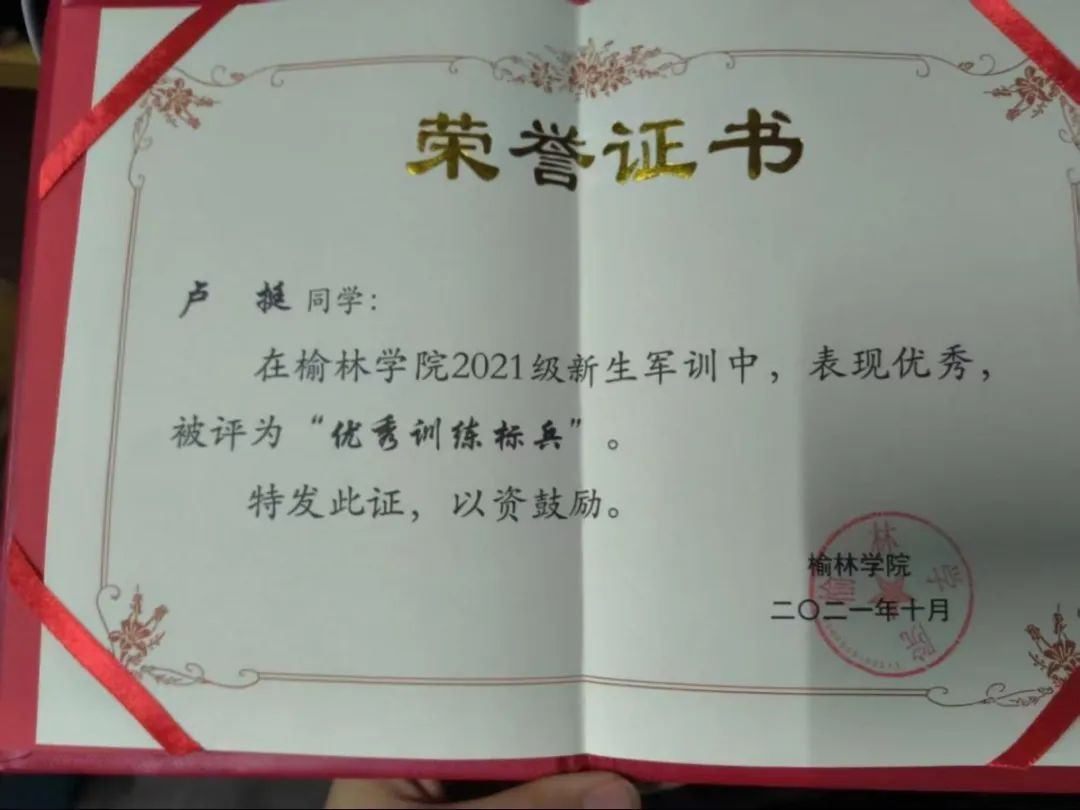 荣誉证书
卢 挺 同学：
在榆林学院2021级新生军训中，表现优秀，
被评为“优秀训练标兵”。
特发此证，以资鼓励。
榆林学院
二〇二一年十月
榆林学院